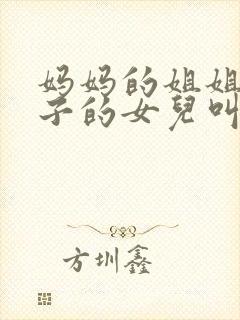 妈妈的姐姐
子的女兒叫
方圳鑫